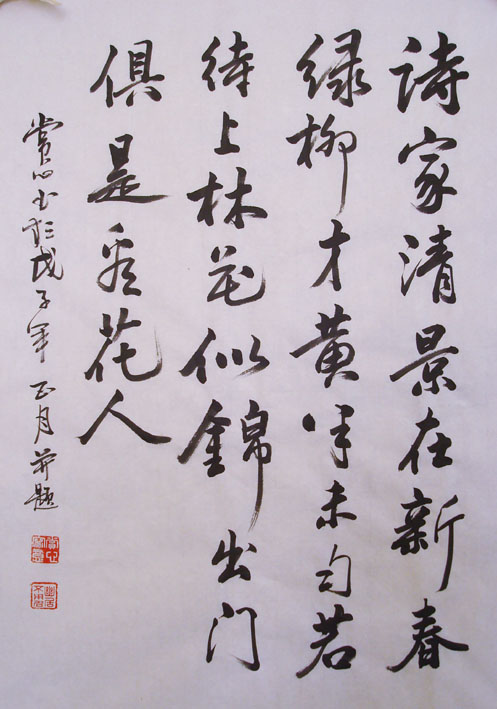 詩家清景在新春
绿柳才黄半未匀若
待上林花似錦出门
俱是看花人
赏心书於戊子年正月并题